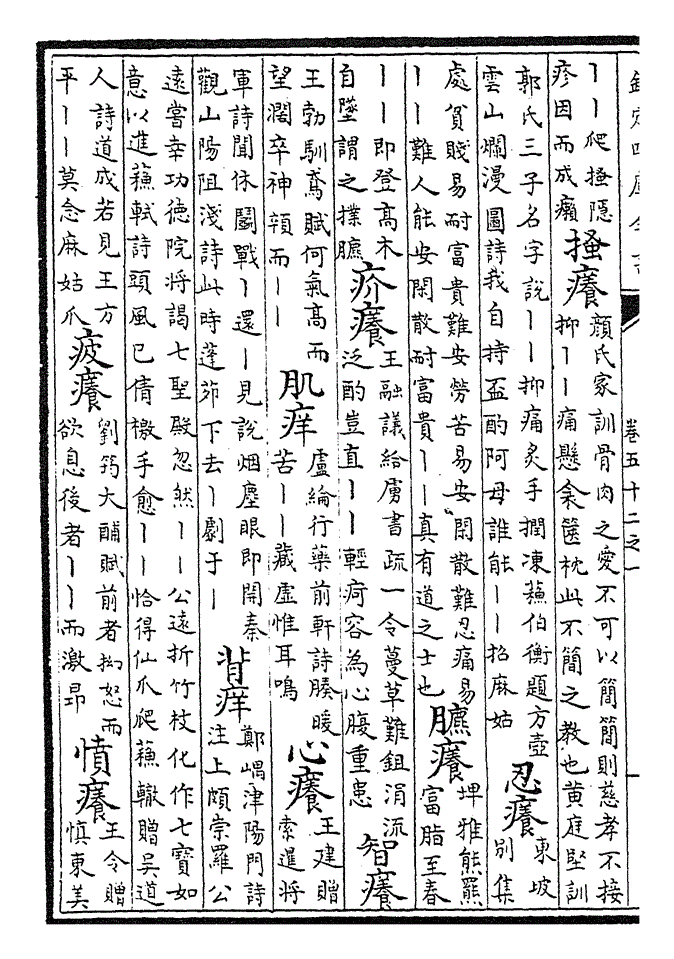 欽定四庫全書
卷五十二之一
丨丨爬搔隱
疹因而成癩
搔癢
顔氏家訓骨肉之愛不可以簡簡則慈孝不接
抑丨丨痛懸衾篋枕此不簡之教也黄庭堅訓
郭氏三子名字說丨丨抑痛炙手撋凍蘇伯衡題方壺
雲山爛漫圖詩我自持盃酌阿母誰能丨丨招麻姑
忍癢
東坡
别集
處貧賤易耐富貴難安勞苦易安閒散難忍痛易
丨丨難人能安閒散耐富貴丨丨真有道之士也
臕癢
埤雅熊羆
富脂至春
丨丨即登髙木
自墜謂之撲臕
疥癢
王融議給虜書疏一令蔓草難鉏涓流
泛酌豈直丨丨輕疴容為心腹重患
智癢
王勃馴鳶賦何氣髙而
望濶卒神頟而丨丨
肌痒
盧綸行藥前軒詩膝暖
苦丨丨藏虚惟耳鳴
心癢
王建贈
索暹將
軍詩聞休鬭戰丨還丨見說烟塵眼即開秦
觀山陽阻淺詩此時蓬茆下去丨劇于丨
背痒
鄭嵎津陽門詩
注上頗崇羅公
遠嘗幸功德院將謁七聖殿忽然丨丨公遠折竹枝化作七寶如
意以進蘇軾詩頭風已倩檄手愈丨丨恰得仙爪爬蘇轍贈吳道
人詩道成若見王方
平丨丨莫念麻姑爪
疲癢
劉筠大酺賦前者抝怒而
欲息後者丨丨而激昂
憤癢
王令贈
慎東美